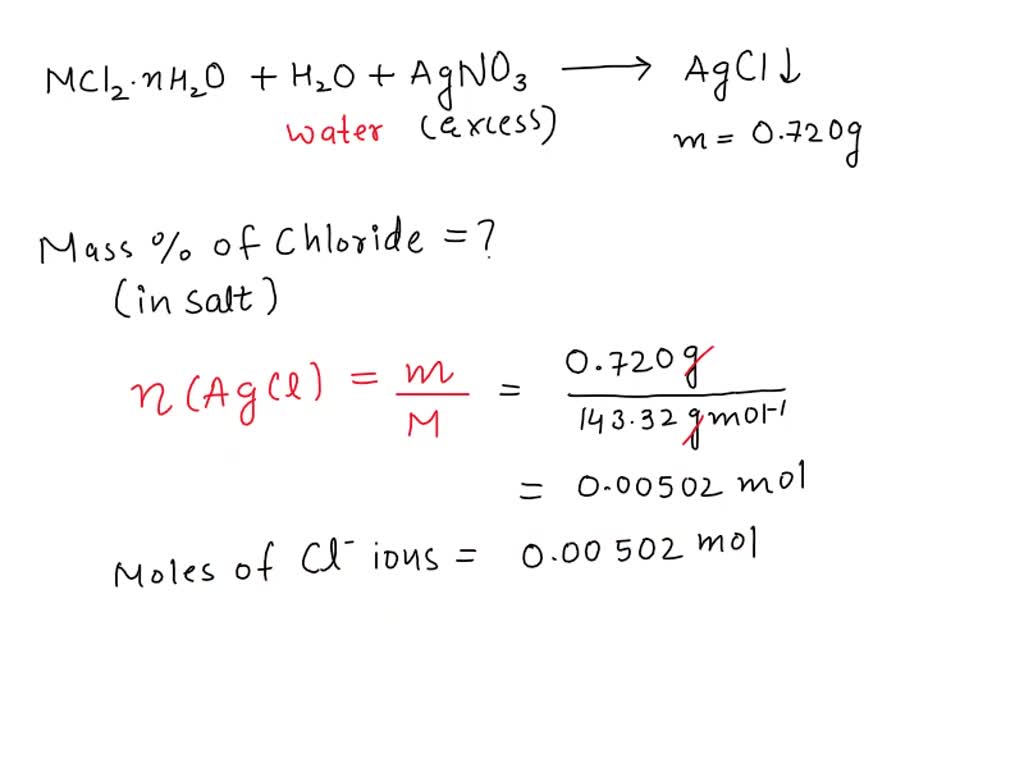 MCl₂·nH₂O + H₂O + AgNO₃ ⟶ AgCl↓
water (excess) m = 0.720g
Mass % of Chloride = ?
(in salt)
n(AgCl) = m/M = 0.720g/143.32 gmol⁻¹
= 0.00502 mol
Moles of Cl⁻ ions = 0.00502 mol